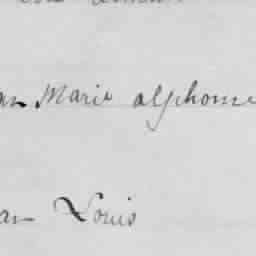 an Marie alphonse
an Louis